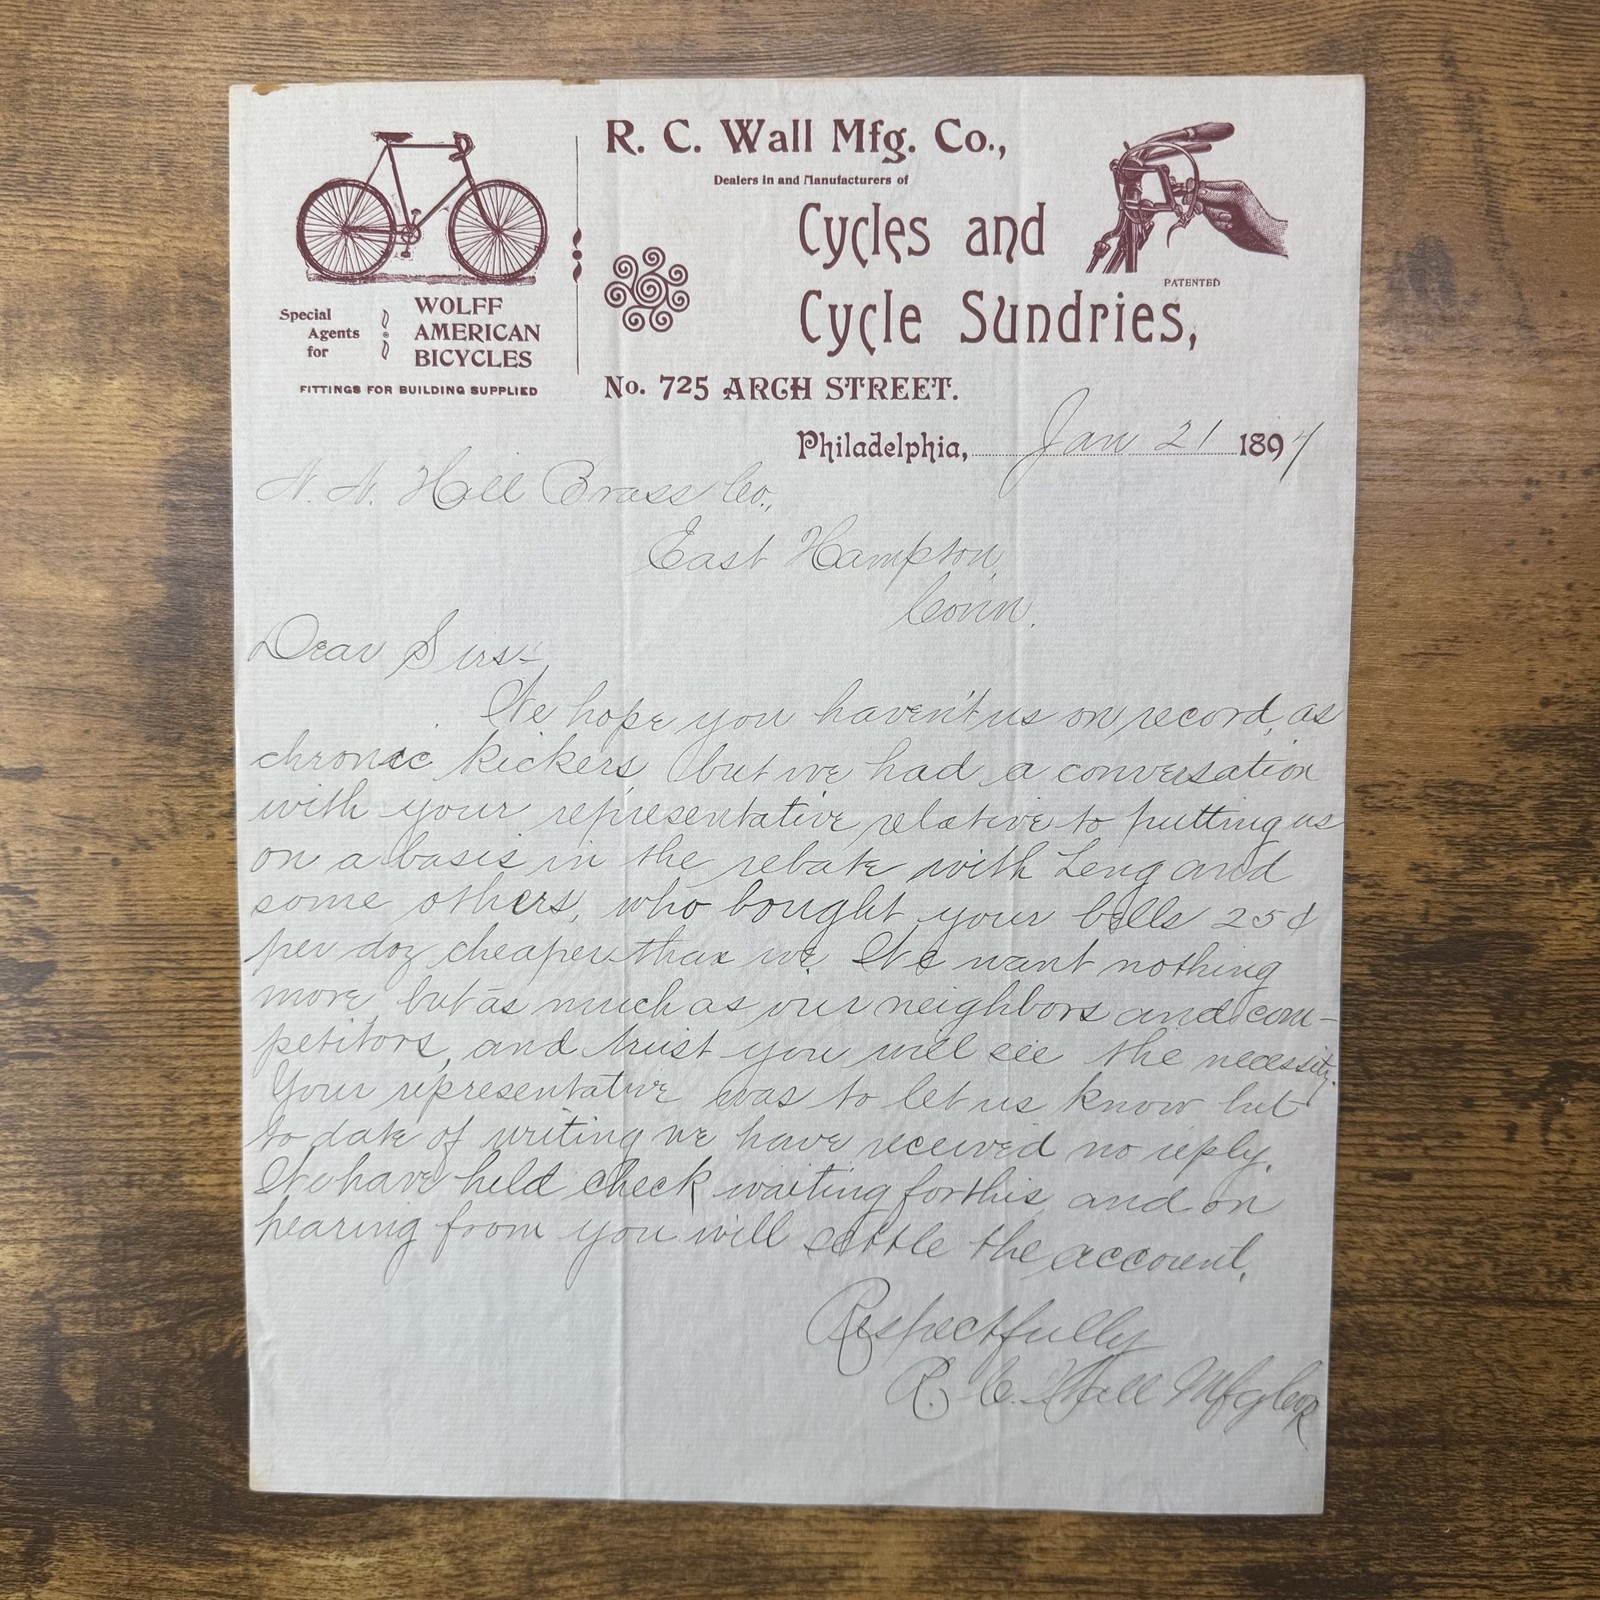 R. C. Wall Mfg. Co.,
Dealers in and Manufacturers of
Cycles and
Cycle Sundries,
PATENTED
Special
Agents
for
WOLFF
AMERICAN
BICYCLES
FITTINGS FOR BUILDING SUPPLIED
No. 725 ARCH STREET.
Philadelphia, Jan 21 1897
N. N. Hill Brass Co.,
East Hampton,
Conn.
Dear Sirs-
We hope you haven't us on record, as
chronic kickers, but we had a conversation
with your representative relative to putting us
on a basis in the rebate with Leng and
some others, who bought your bells 25¢
per doz cheaper than we. We want nothing
more, but as much as our neighbors and com-
petitors, and trust you will see the necessity.
Your representative was to let us know but
to date of writing we have received no reply.
We have held check waiting for this, and on
hearing from you will settle the account.
Respectfully
R. C. Wall Mfg Co